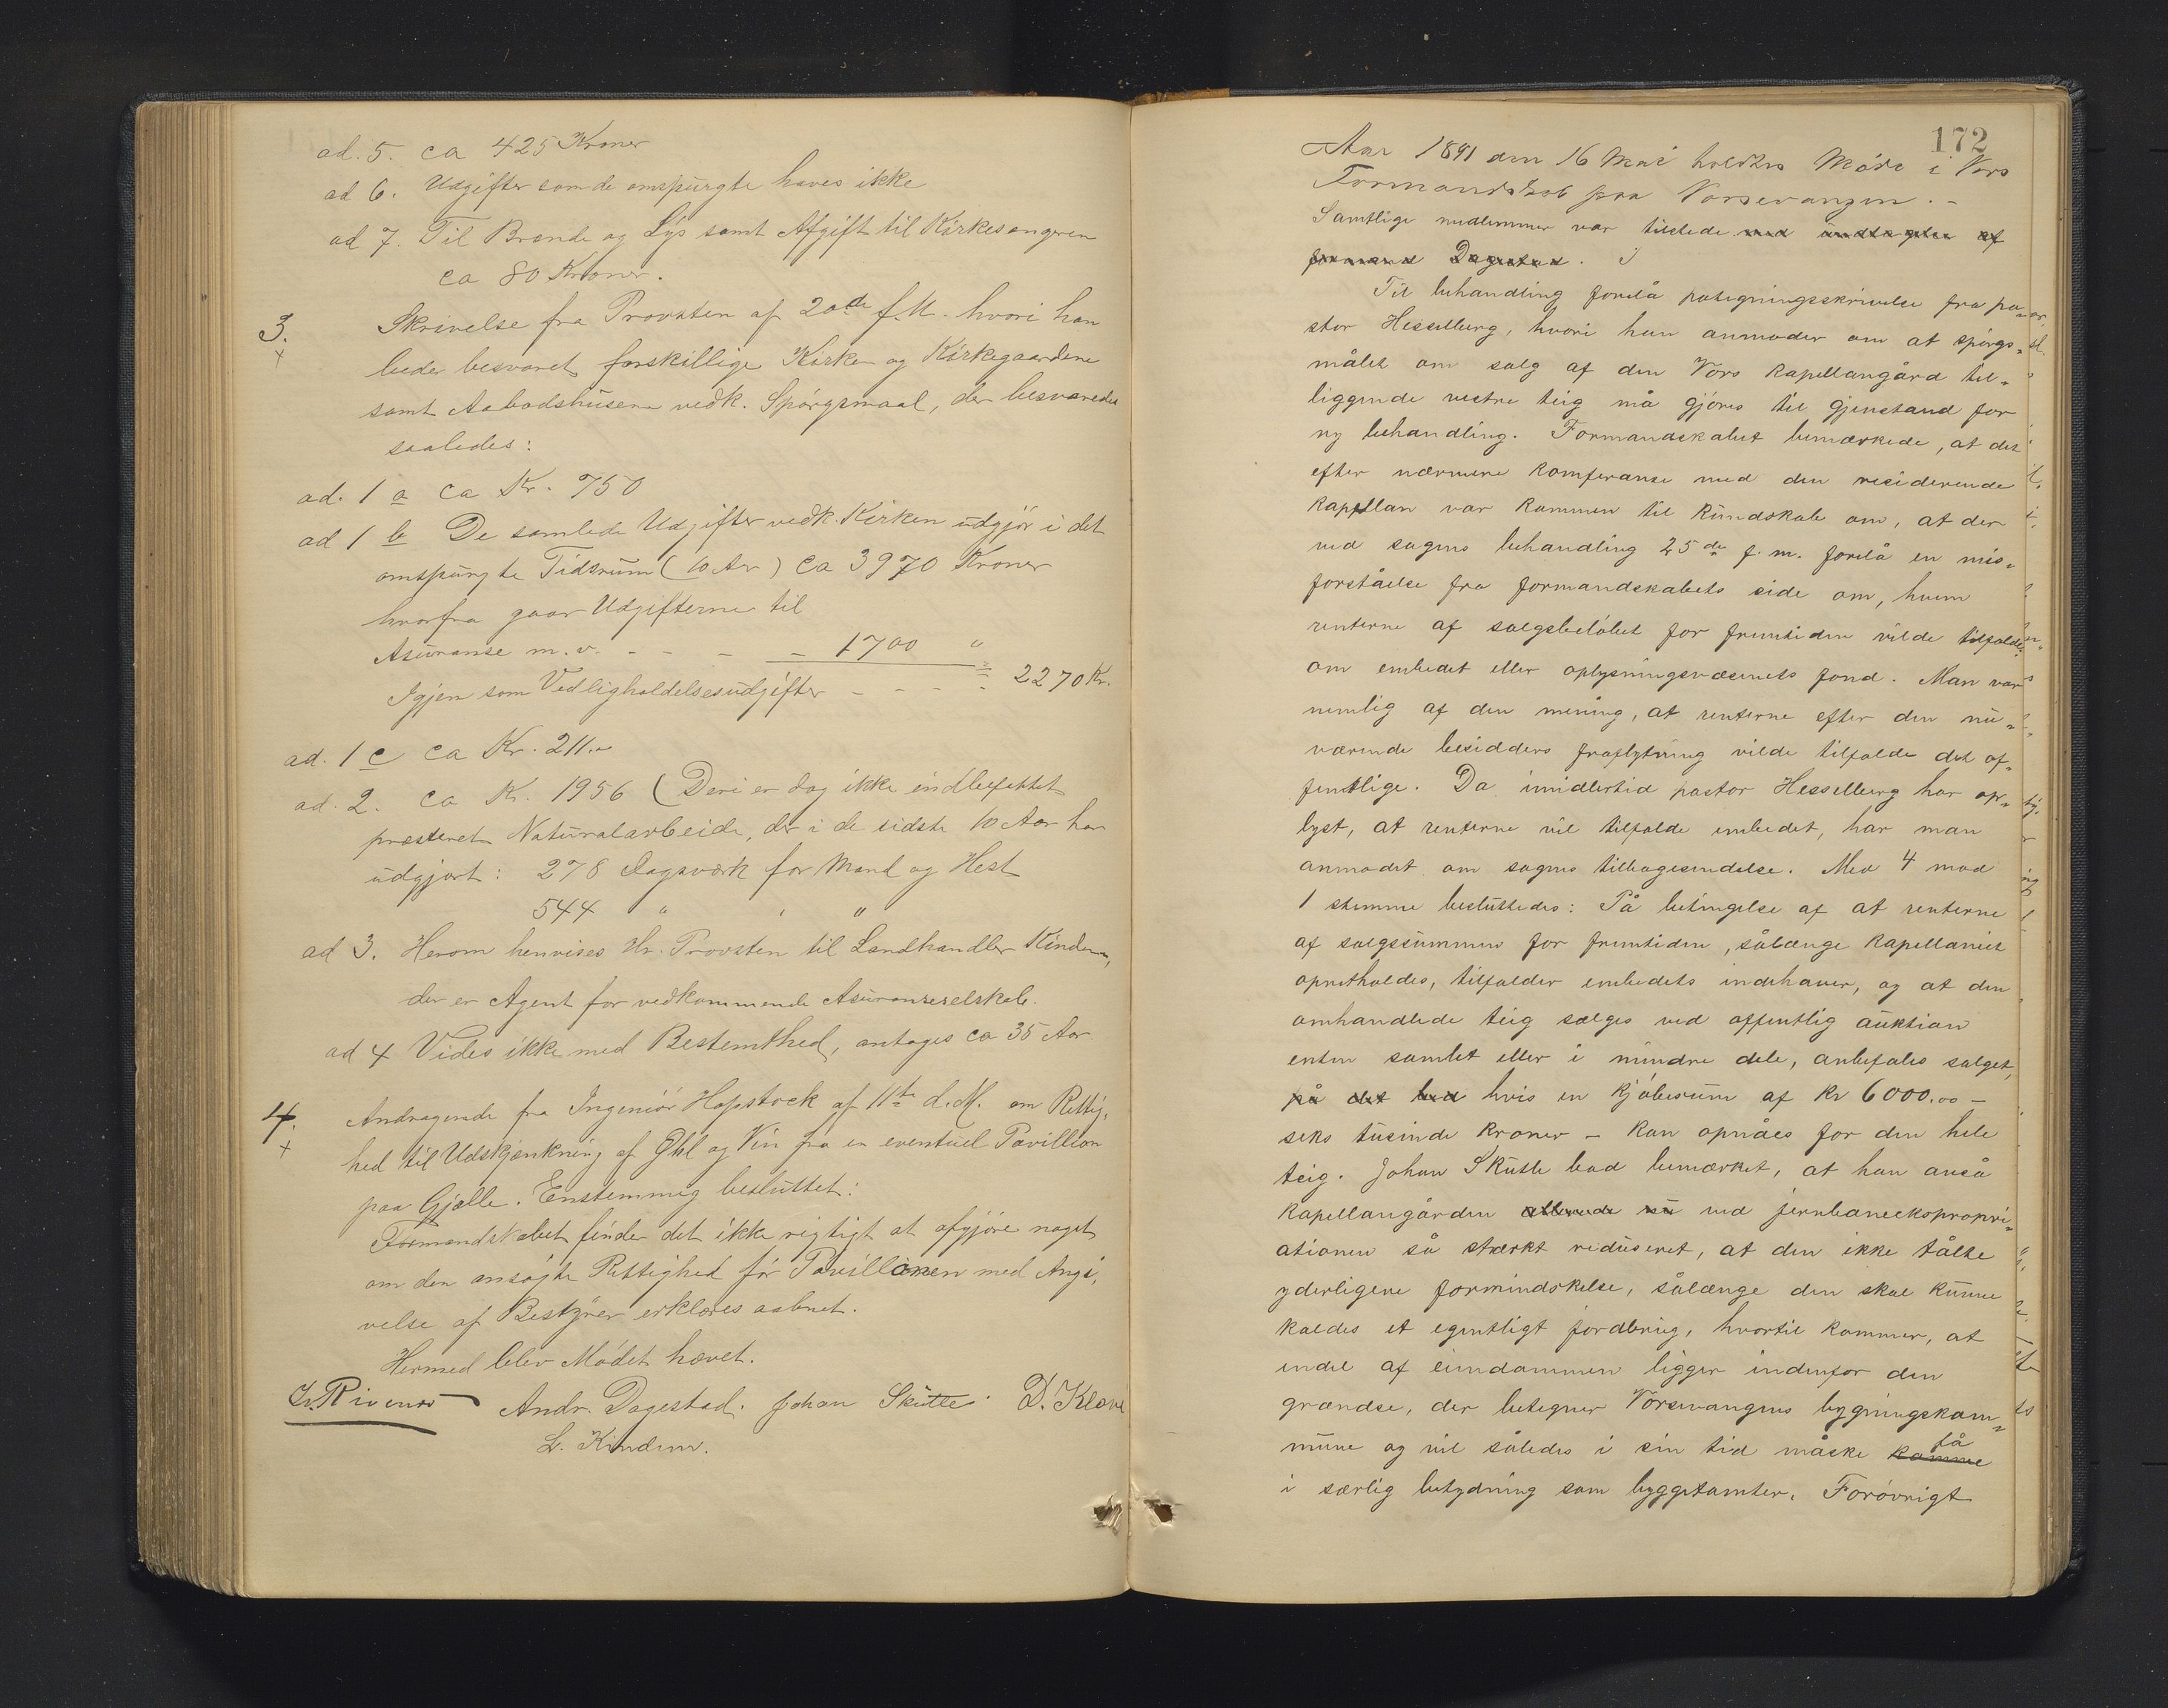 ad. 5. ca 425 Kroner
ad 6. Udgifter som de omspurgte haves ikke
ad 7. Til Brænde og Lys samt Afgift til Kirkesangeren
ca 80 Kroner.
3. Skrivelse fra Provsten af 20de f.M. hvori han
beder besvaret forskillige Kirken og Kirkegaardene
samt Aabodshusene vedk. Spørgsmaal, der besvaredes
saaledes:
ad. 1 a ca Kr. 750
ad 1 b De samlede Udgifter vedk. Kirken udgjør i det
omspurgte Tidsrum (10 Aar) ca 3970 Kroner
hvorfra gaar Udgifterne til
Asuranse m. v. - - - - 1700 "
Igjen som Vedligholdelsesudgifter - - - - 2270 Kr.
ad. 1 c ca Kr. 211.
ad. 2. ca Kr. 1956 (Deri er dog ikke indbefattet
præsteret Naturalarbeide, der i de sidste 10 Aar har
udgjort: 278 Dagsværk for Mand og Hest
544 " " "
ad 3. Herom henvises Hr. Provsten til Landhandler Kindem,
der er Agent for vedkommende Asuranseselskab.
ad 4 Vides ikke med Bestemthed, antages ca 35 Aar.
4. Andragende fra Ingeniør Hopstock af 11te d.M. om Rettig,
hed til Udskjænkning af Øhl og Vin fra en eventuel Pavillion
paa Gjelle. Enstemmig besluttet:
Formandskabet finder det ikke rigtigt at afgjøre noget
om den ansøgte Rettighed før Pavillionen med Angi,
velse af Bestyrer erklæres aabnet.
Hermed blev Mødet hævet.
Andr. Dagestad. Johan Skutle. D. Kløve
L. Kindem.
172
Aar 1891 den 16 Mai holdtes Møde i Vors
Formandskab paa Vorsevangen. -
Samtlige medlemmer var tilstede med undtagelse af
formand Dagestad.
Til behandling forelå påtegningsskrivelse fra pa-
stor Hesselberg, hvori han anmoder om at spørgs-
målet om salg af den Vors kapellangård til-
liggende vestre teig må gjøres til gjenstand for
ny behandling. Formandskabet bemærkede, at det
efter nærmere konferanse med den residerende
kapellan var kommen til kundskab om, at der
ved sagens behandling 25de f. m. forelå en mis-
forståelse fra formandskabets side om, hvem
renterne af salgsbeløbet for fremtiden vilde tilfalde,
om embedet eller oplysningsvæsenets fond. Man var
nemlig af den mening, at renterne efter den nu-
værende besidders fraflytning vilde tilfalde det of-
fentlige. Da imidlertid pastor Hesselberg har op-
lyst, at renterne vil tilfalde embedet, har man
anmodet om sagens tilbagesendelse. Med 4 mod
1 stemme besluttedes: På betingelse af at renterne
af salgssummen for fremtiden, sålænge kapellaniet
opretholdes, tilfalder embedets indehaver, og at den
omhandlede teig sælges ved offentlig auktion
enten samlet eller i mindre dele, anbefales salget,
på det bud hvis en kjøbesum af kr 6000.00 -
seks tusinde kroner - kan opnåes for den hele
teig. Johan Skutle bad bemærket, at han anså
kapellangården allerede nu ved jernbaneekspropri-
ationen så stærkt reduseret, at den ikke tålte
yderligere formindskelse, sålænge den skal kunne
kaldes et egentligt jordbrug, hvortil kommer, at
endel af eiendommen ligger indenfor den
grændse, der betegner Vorsevangens bygningskom-
mune og vil således i sin tid måske komme få
i særlig betydning som byggetomter. Forøvrigt